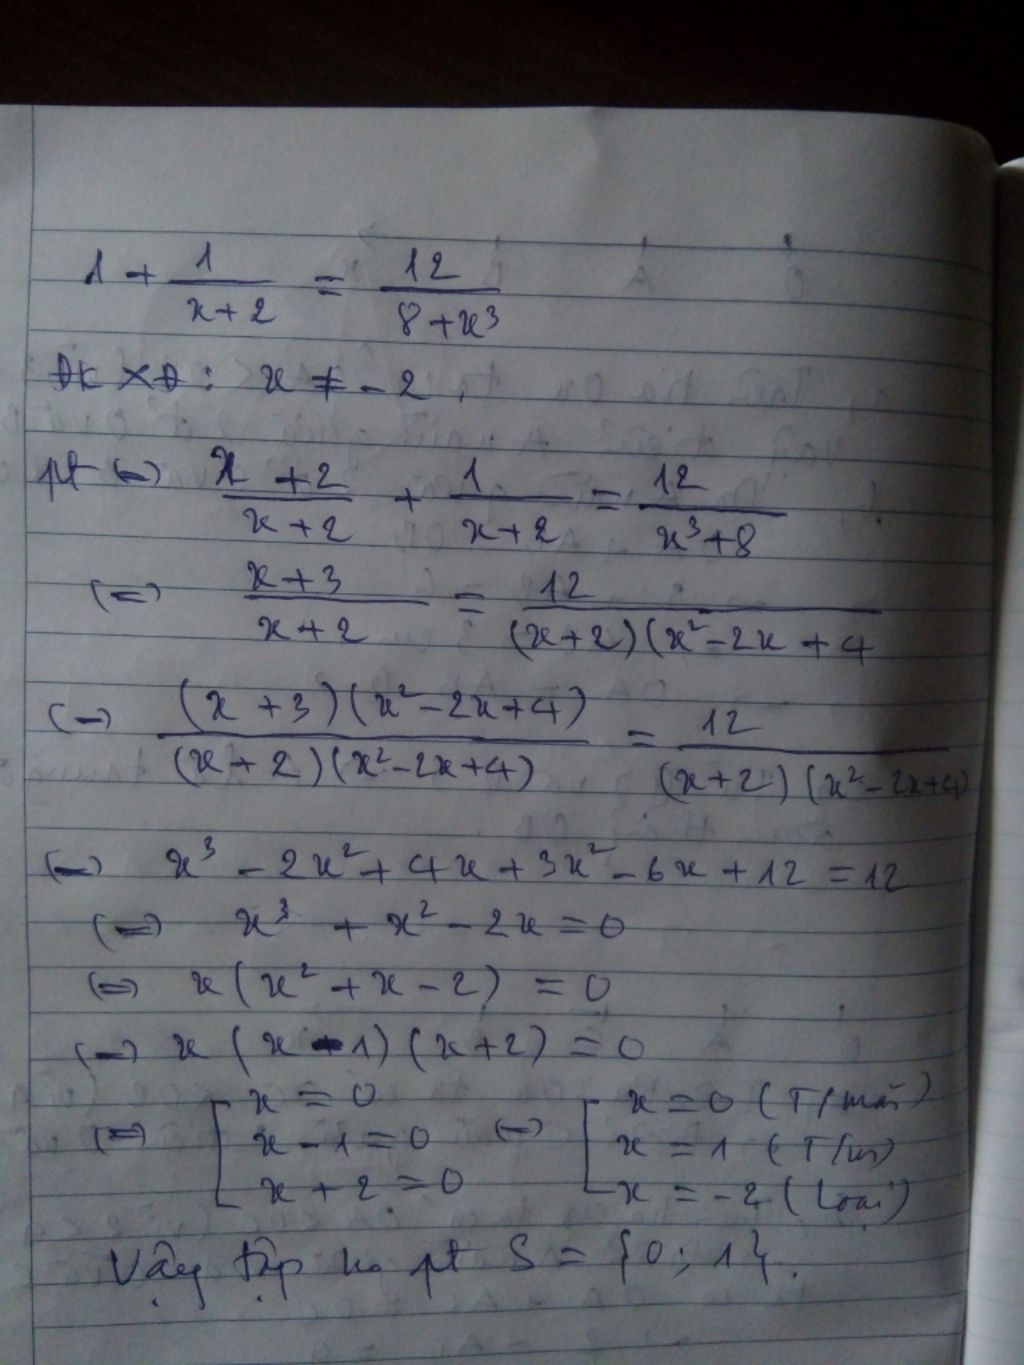 1 + 1/(x+2) = 12/(8+x³)
ĐKXĐ: x ≠ -2
pt (=) (x+2)/(x+2) + 1/(x+2) = 12/(x³+8)
(=) (x+3)/(x+2) = 12/((x+2)(x²-2x+4
(=) ((x+3)(x²-2x+4))/((x+2)(x²-2x+4)) = 12/((x+2)(x²-2x+4))
(=) x³ - 2x² + 4x + 3x² - 6x + 12 = 12
(=) x³ + x² - 2x = 0
(=) x(x² + x - 2) = 0
(=) x(x-1)(x+2) = 0
(=) [ x = 0 (=) [ x = 0 (T/mãn)
x - 1 = 0 x = 1 (T/m)
x + 2 = 0 x = -2 (Loại)
Vậy tập no pt S = {0; 1}.